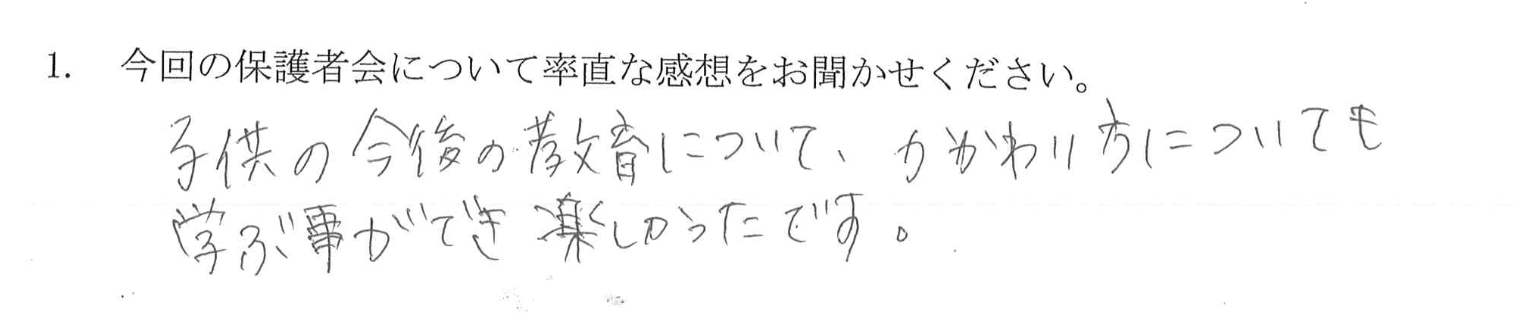 1. 今回の保護者会について率直な感想をお聞かせください。
子供の今後の教育について、かかわり方についても
学ぶ事ができ楽しかったです。